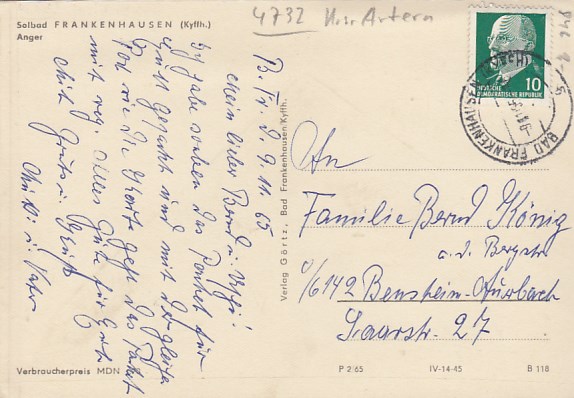 Solbad FRANKENHAUSEN (Kyffh.)
Anger
4732 Kr. Artern
DEUTSCHE
DEMOKRATISCHE REPUBLIK
10
BAD FRANKENHAUSEN
B. Fr. d. 9. 11. 65
Mein lieber Bernd u. Uschi!
Ich habe soeben das Paket für
Euch gepackt und mit der gleichen
Post wie die Karte geht das Paket
mit weg. Alles Gute für Euch
Mit Gruß u. Kuß
Mutti u. Vater
Verlag Görtz, Bad Frankenhausen/Kyffh.
An
Familie Bernd König
a. d. Bergstr.
6142 Bensheim-Auerbach
Saarstr. 27
Verbraucherpreis MDN
P 2/65
IV-14-45
B 118